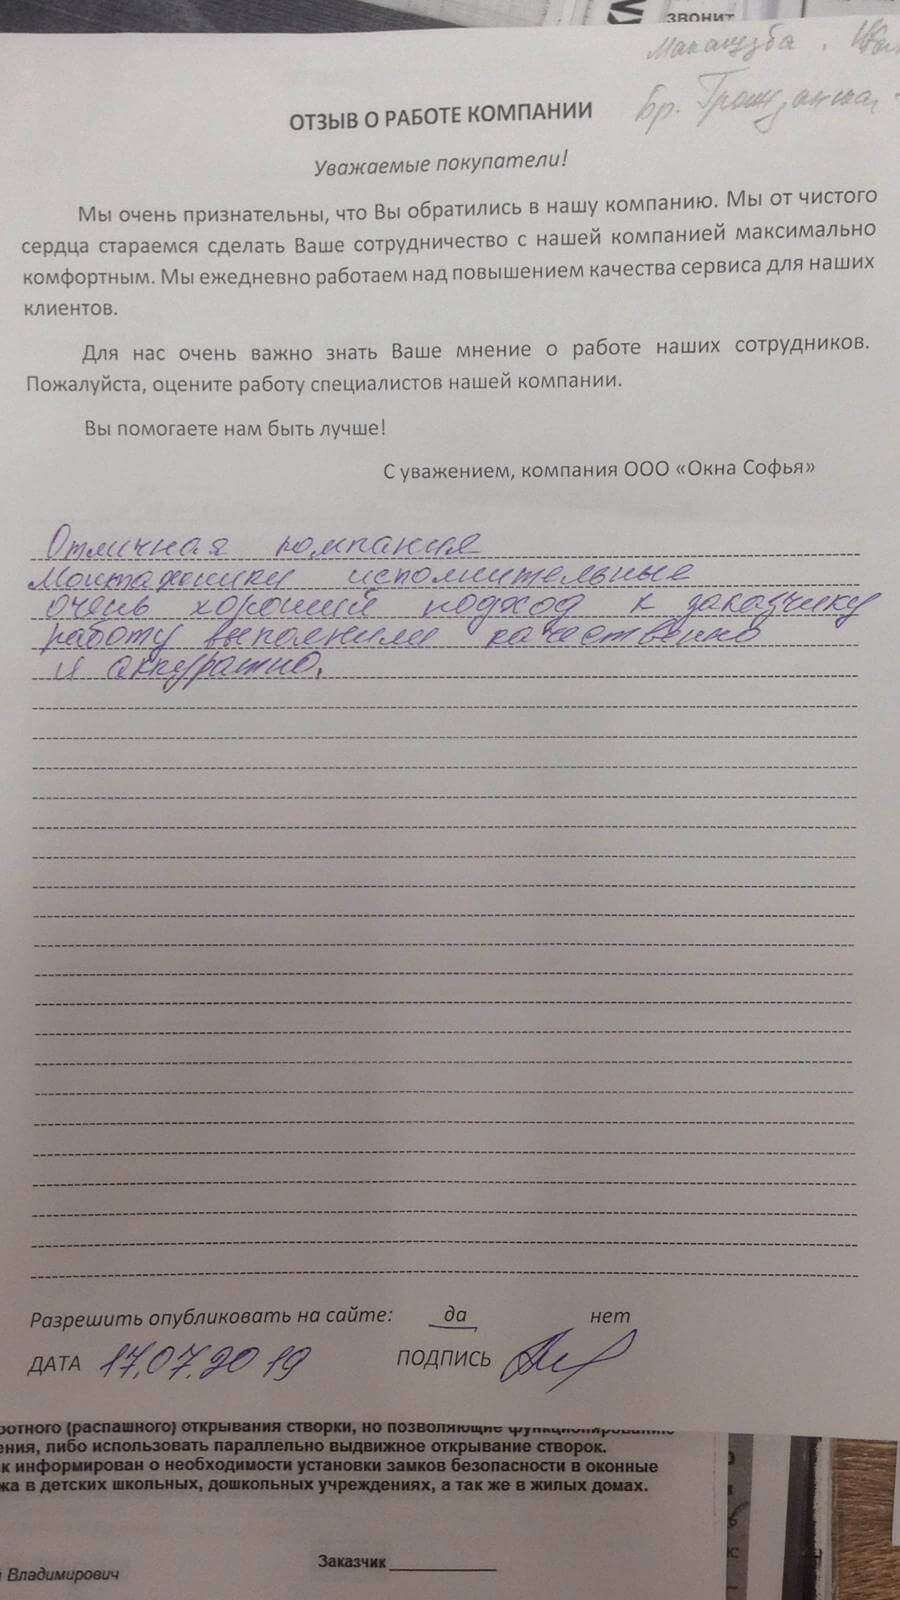 звонит
Бр.
ОТЗЫВ О РАБОТЕ КОМПАНИИ
Уважаемые покупатели!
Мы очень признательны, что Вы обратились в нашу компанию. Мы от чистого
сердца стараемся сделать Ваше сотрудничество с нашей компанией максимально
комфортным. Мы ежедневно работаем над повышением качества сервиса для наших
клиентов.
Для нас очень важно знать Ваше мнение о работе наших сотрудников.
Пожалуйста, оцените работу специалистов нашей компании.
Вы помогаете нам быть лучше!
С уважением, компания ООО «Окна Софья»
Отличная компания
Монтажники исполнительные
очень хороший подход к заказчику
работу выполнили качественно
и аккуратно.
Разрешить опубликовать на сайте: да нет
ДАТА 17.07.2019 ПОДПИСЬ
ротного (распашного) открывания створки, но позволяющие функционирование
ения, либо использовать параллельно выдвижное открывание створок.
к информирован о необходимости установки замков безопасности в оконные
жа в детских школьных, дошкольных учреждениях, а так же в жилых домах.
Заказчик
й Владимирович